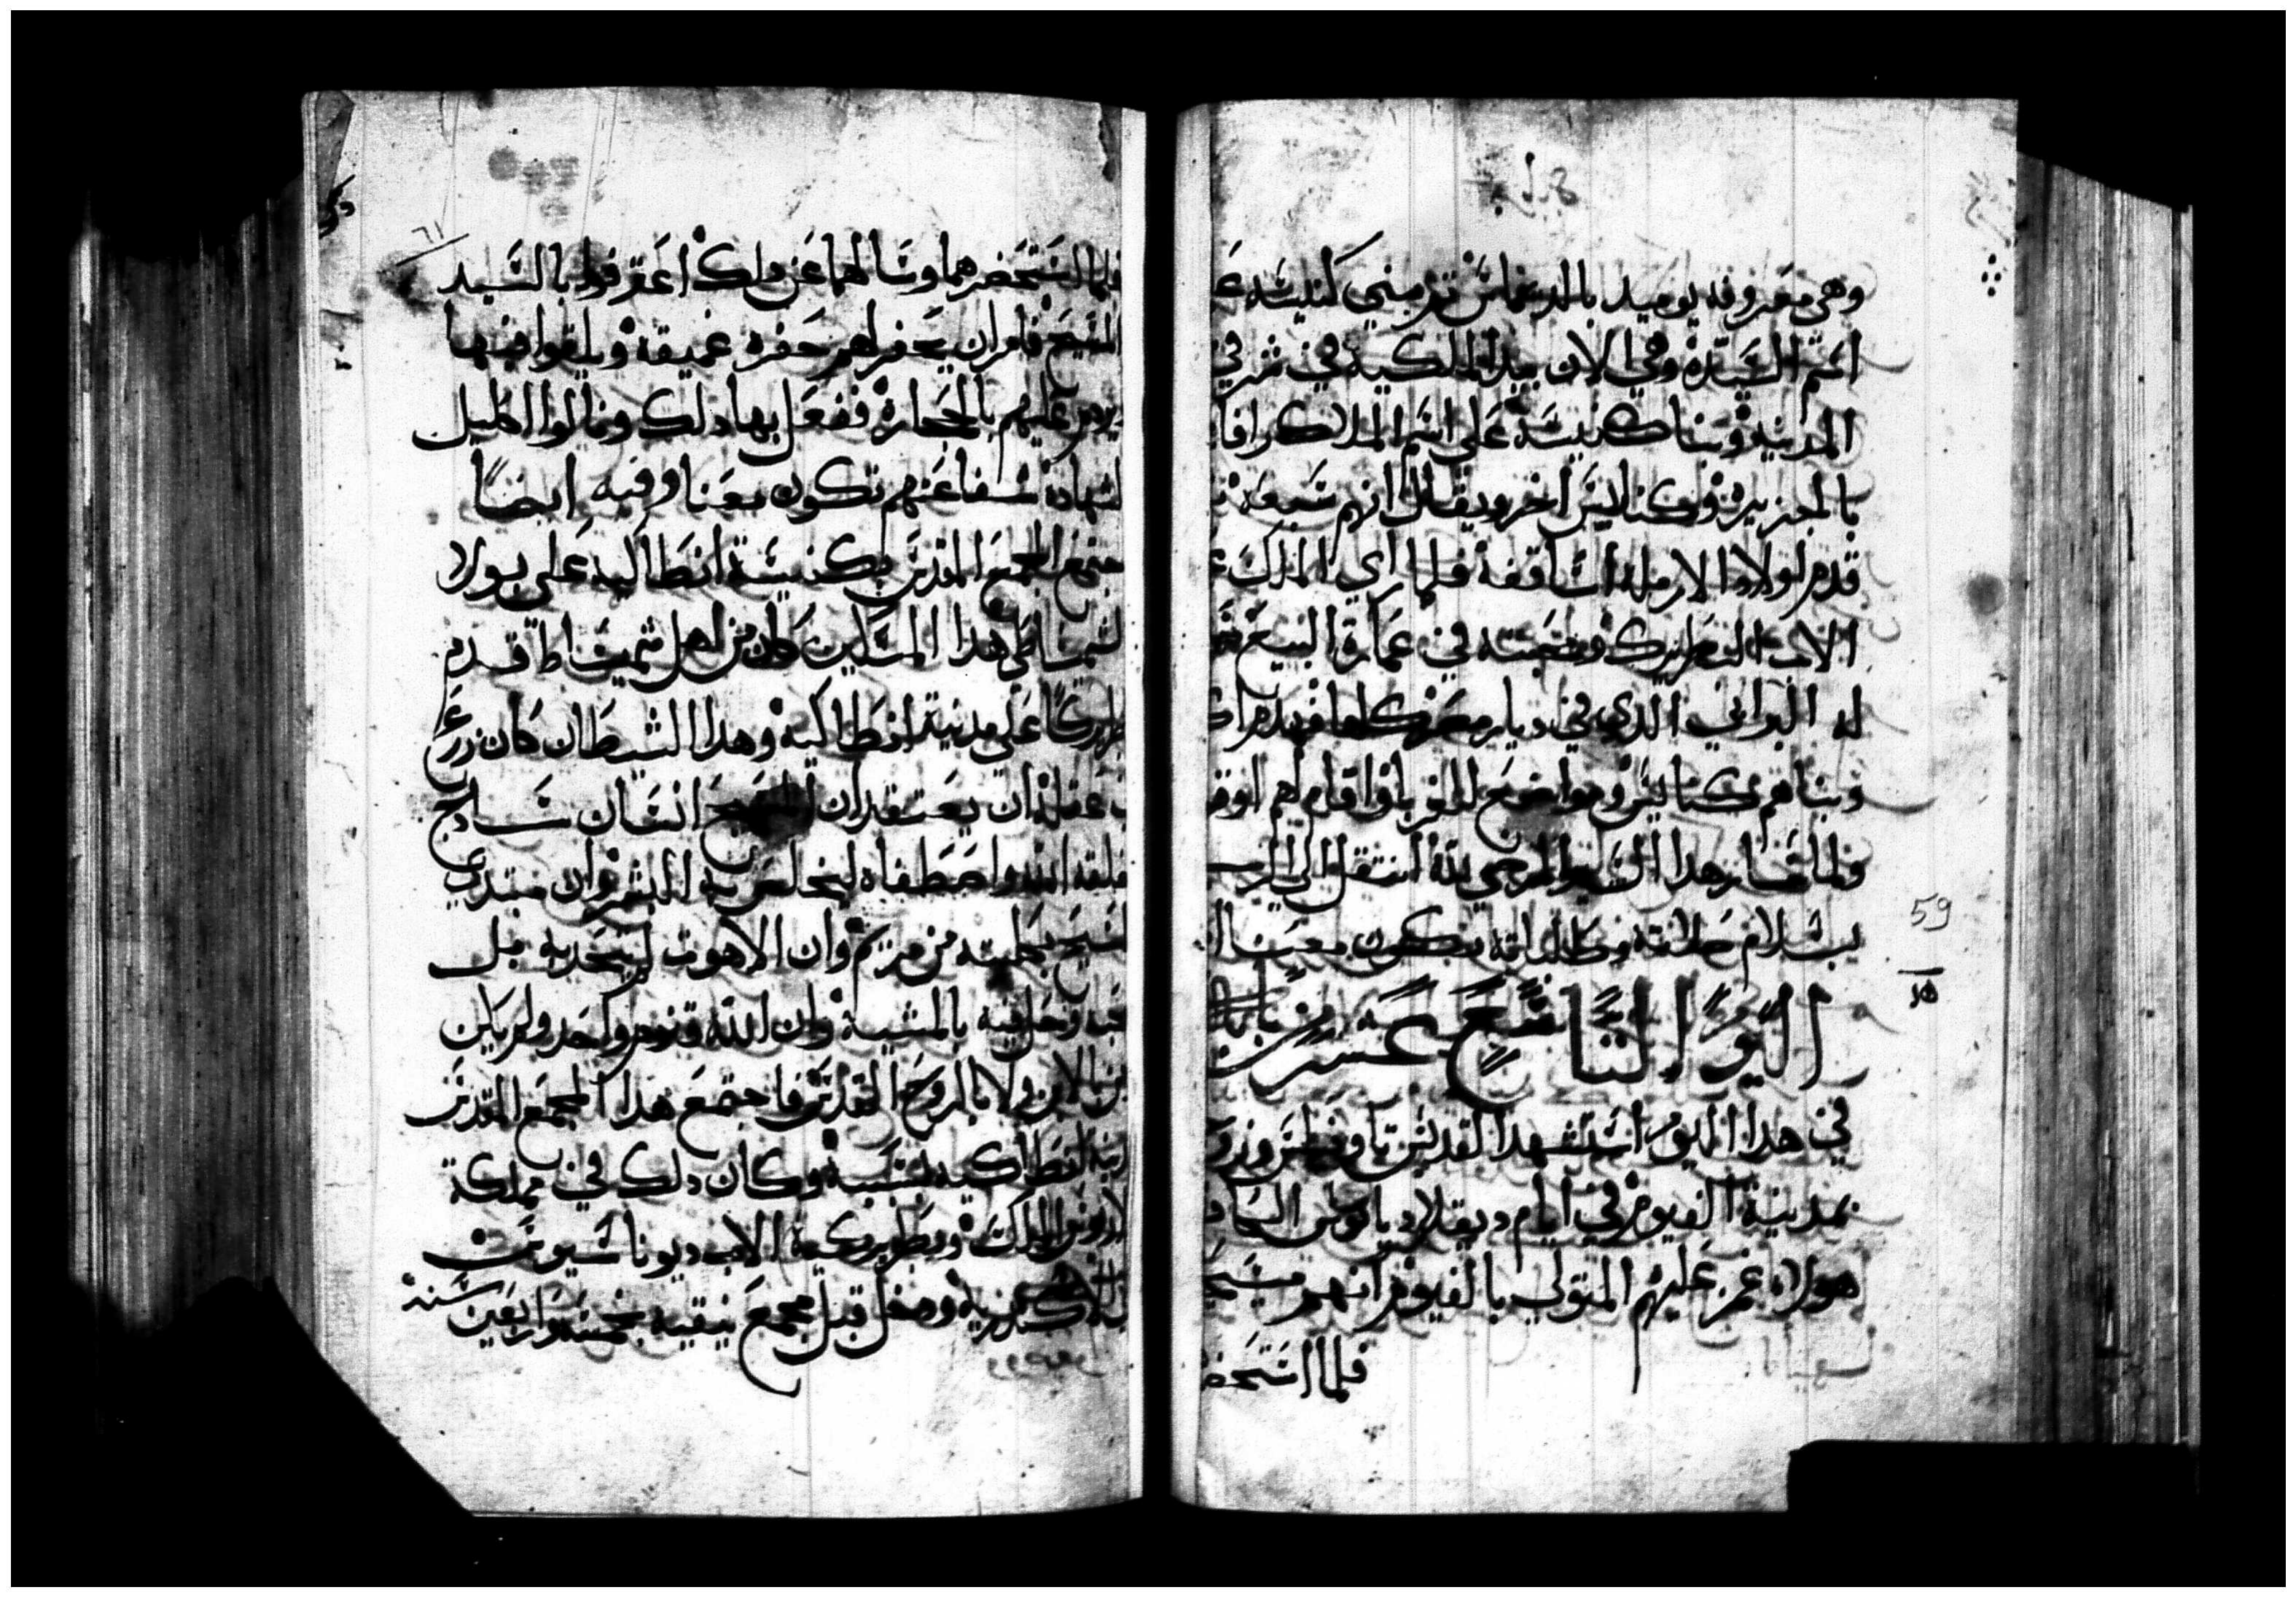 وهي معروفه يوميد بالديماس ثم بني كنيسه ع
اسم السيدة وهي الان بيد الملكية في شرقي
المدينه وبنا كنيسة على اسم الملاك رافا
بالجزيره وكنايس اخر ويقال انهم سبعه
قدم لولاوا الارمله اساقفه فلما راي الملك
الاب البطريرك ومحبته في عمارة البيع
له البرابي الذي في ديار مصر كلها فهدم
وبناهم كنايس ومواضع للغربا واقام لهم
ولما سار هذا السايره المرضي لله انتقل الي الرب
بسلام صلاته وطلباته تكون معنا ا
اليوم التاسع عشر من بابه
في هدا اليوم استشهدا القديس تاوفيلس وزو
بمدينة الفيوم في ايام ديقلاديانوس
هولاء غمز عليهم المتولي بالفيوم انهم مسيح
فلما استحض
59
١٥
٦١
فلما استحضرهما وسالهما عن دلك اعترفوا بالسيد
المسيح فامر ان يحفر لهم حفره عميقه ويلقوا فيها
يردم عليهم بالحجارة ففعل بها دلك ونالوا اكليل
لشهاده شفاعتهم تكون معنا وفيه ايضاً
جتمع المجمع المقدس بكنيسة انطاكيه على بولا
لشمساطي هدا المسكين كان من اهل شميساط قدم
طريركاً على مدينة انطاكيه وهدا الشيطان كان زرع
عقله ان يعتقد ان المسيح انسان سادج
خلقه الله واصطفاه ليخلص به البشر وان مبتدي
لمسيح بجملته من مريم وان الاهوت لم يتحد به بل
حبه وحل فيه بالمشية وان الله قنوم واحد ولم يكن
من بالابن ولا بالروح القدس فاجتمع هدا المجمع المقدس
دينة انطاكيه بسببه وكان دلك في مملكة
الملك وبطريركية الاب ديوناسيوس
الاسكندريه وهو قبل مجمع نيقيه بخمسه واربعين سنه